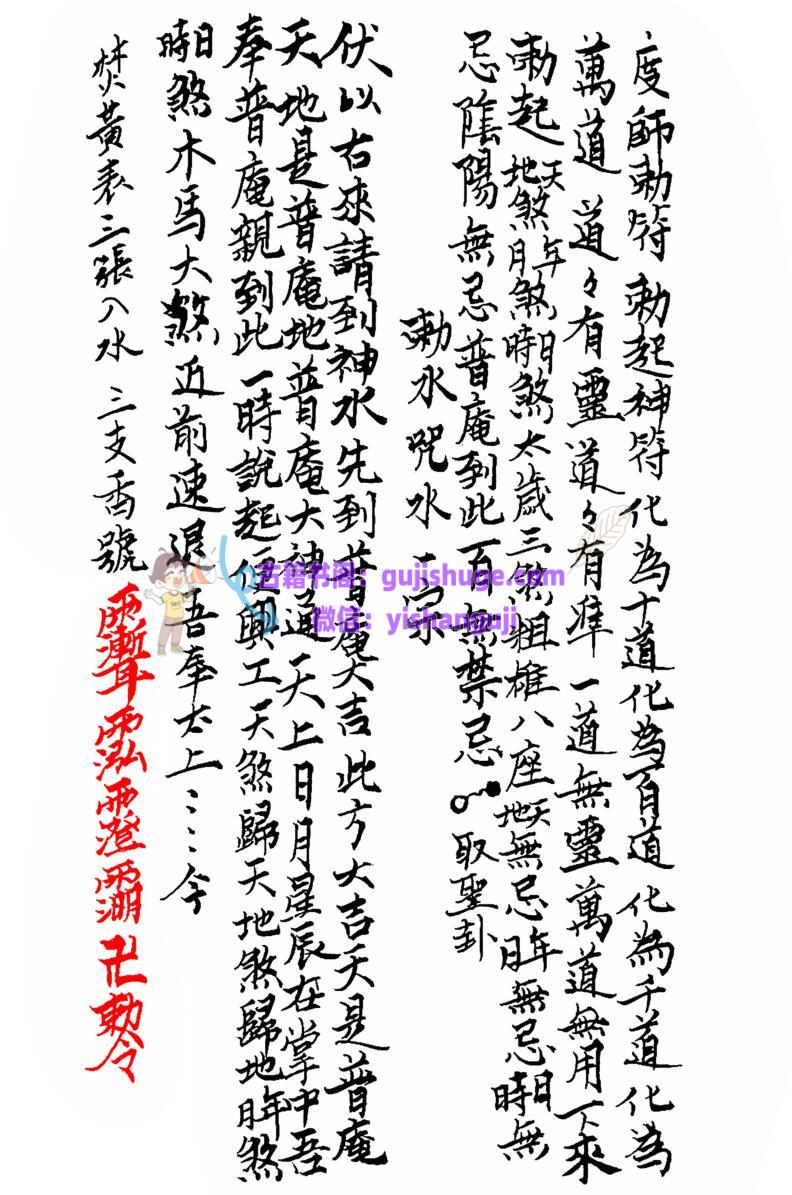 度師勅符 勅起神符化為十道化為百道 化為千道化為
萬道 道々有靈道々有準一道無靈萬道無用下來
勅起天煞地煞年煞月煞日煞時煞太歲三煞粗雄八座天無忌地無忌年無忌月無忌日無忌時無
忌陰陽無忌普庵到此百無禁忌 取聖卦
勅水咒水一宗
伏以右來請到神水先到普庵大吉此方大吉天是普庵
天地是普庵地普庵大神通天上日月星辰在掌中吾
奉普庵親到此一時說起便興工天煞歸天地煞歸地年煞月煞
日煞時煞木馬大煞近前速退吾奉太上:::令
焚黃表三張入水 三支香號 卍勅令
古籍书阁：gujishuge.com
微信：yishanguji